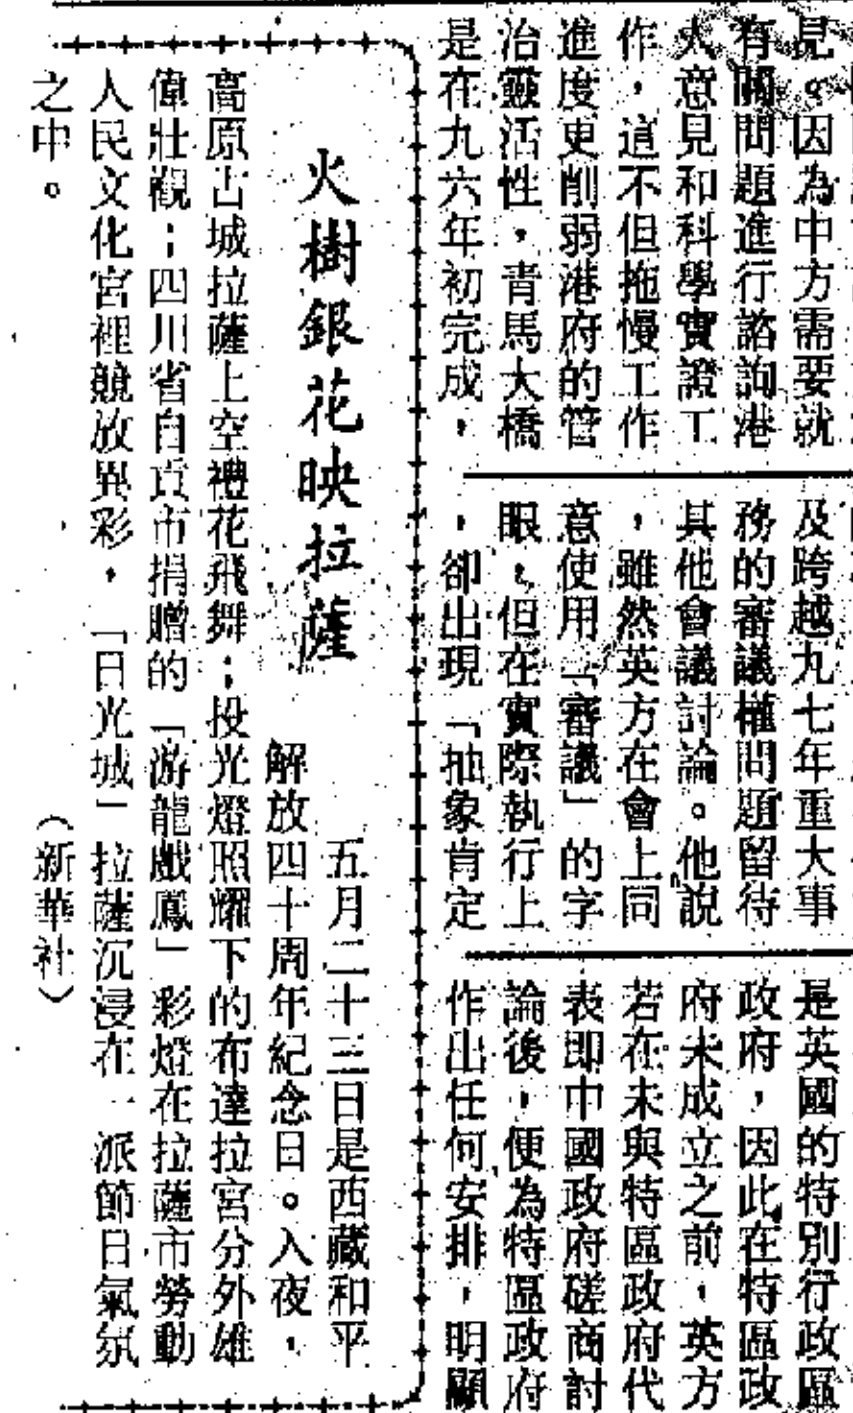 見。因為中方需要就
有關問題進行諮詢港
人意見和科學實證工
作，這不但拖慢工作
進度更削弱港府的管
治靈活性，青馬大橋
是在九六年初完成，
及跨越九七年重大事
務的審議權問題留待
其他會議討論。他說
，雖然英方在會上同
意使用「審議」的字
眼，但在實際執行上
，卻出現「抽象肯定
是英國的特別行政區
政府，因此在特區政
府未成立之前，英方
若在未與特區政府代
表即中國政府磋商討
論後，便為特區政府
作出任何安排，明顯
火樹銀花映拉薩
五月二十三日是西藏和平
解放四十周年紀念日。入夜，
高原古城拉薩上空禮花飛舞；投光燈照耀下的布達拉宮分外雄
偉壯觀；四川省自貢市捐贈的「游龍戲鳳」彩燈在拉薩市勞動
人民文化宮裡競放異彩，「日光城」拉薩沉浸在一派節日氣氛
之中。
（新華社）